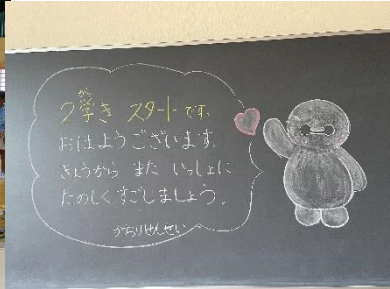 2学き スタートです。
おはようございます。
きょうから また いっしょに
たのしく すごしましょう。